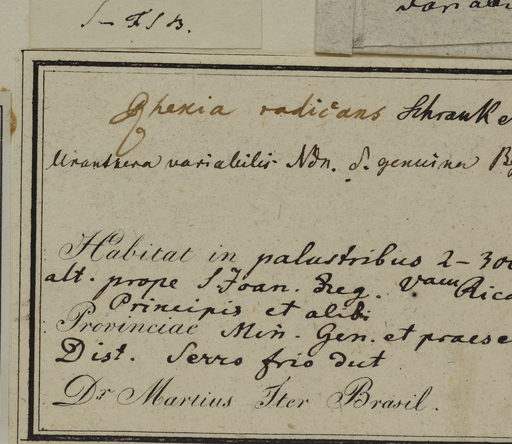 S - F S B.
Rhexia radicans Schrank
Uranthera variabilis Ndn. δ. genuina
Habitat in palustribus 2-300
alt. prope S. Joan. Reg. Vam Rica
Principis et alibi
Provinciae Min. Gen. et praese
Dist. Serro frio dict
Dr Martius Iter Brasil.